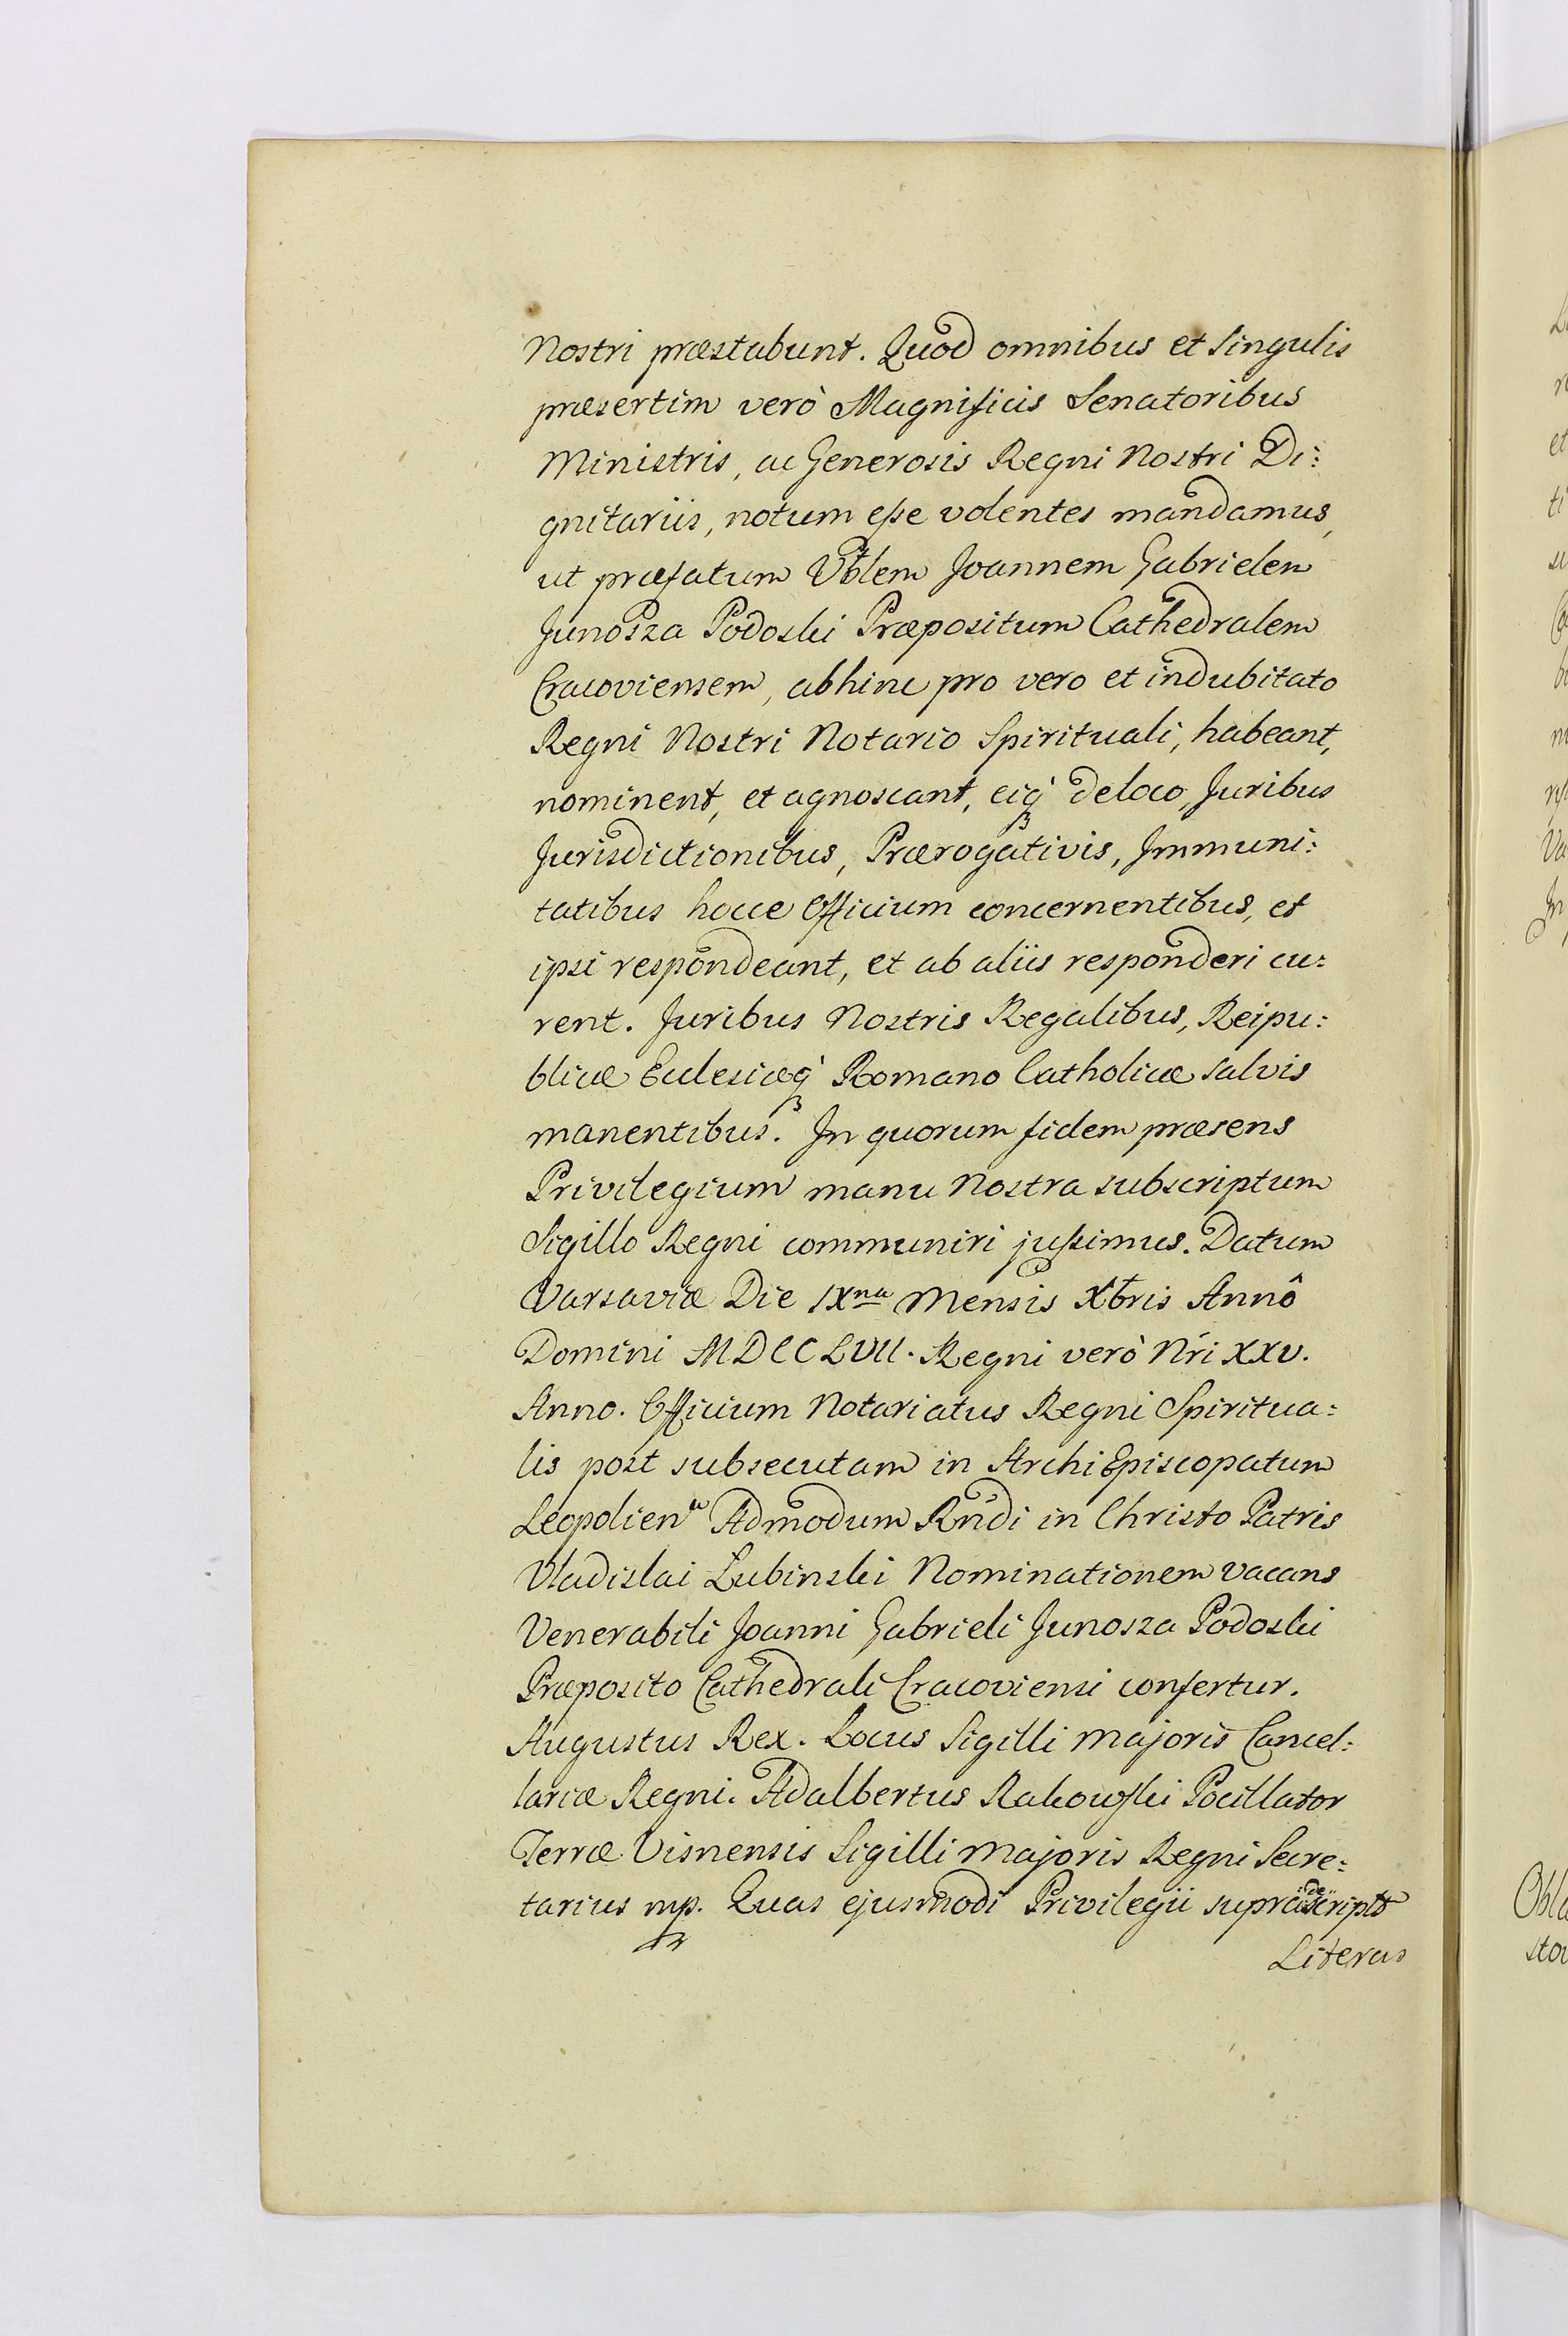 Nostri præstabunt. Quod omnibus et Singulis
præsertim verò Magnificis Senatoribus
Ministris, ac Generosis Regni Nostri Di:
gnitariis, notum esse volentes mandamus,
ut præfatum Vblem Joannem Gabrielem
Junosza Podoski Præpositum Cathedralem
Cracoviensem, abhinc pro vero et indubitato
Regni Nostri Notario Spirituali, habeant,
nominent, et agnoscant, eiq́ꝫ de loco, Juribus
Jurisdictionibus, Prærogativis, Immuni:
tatibus hocce Officium concernentibus, et
ipsi respondeant, et ab aliis responderi cu:
rent. Juribus Nostris Regalibus, Reipu:
blicæ Ecclesiæq́ꝫ Romano Catholicæ salvis
manentibus. In quorum fidem præsens
Privilegium manu Nostra subscriptum
Sigillo Regni communiri jussimus. Datum
Varsaviæ Die IXna Mensis Xbris Annô
Domini MDCCLVII. Regni verò Nri XXV.
Anno. Officium Notariatus Regni Spiritua:
lis post subsecutam in Archi Episcopatum
Leopolien Admodum Rndi in Christo Patris
Vladislai Lubinski Nominationem vacans
Venerabili Joanni Gabrieli Junosza Podoski
Præposito Cathedrali Cracoviensi confertur.
Augustus Rex. Locus Sigilli Majoris Cancel:
lariæ Regni. Adalbertus Rakowski Pocillator
Terræ Visnensis Sigilli Majoris Regni Secre:
tarius mp. Quas ejusmodi Privilegii
Literas